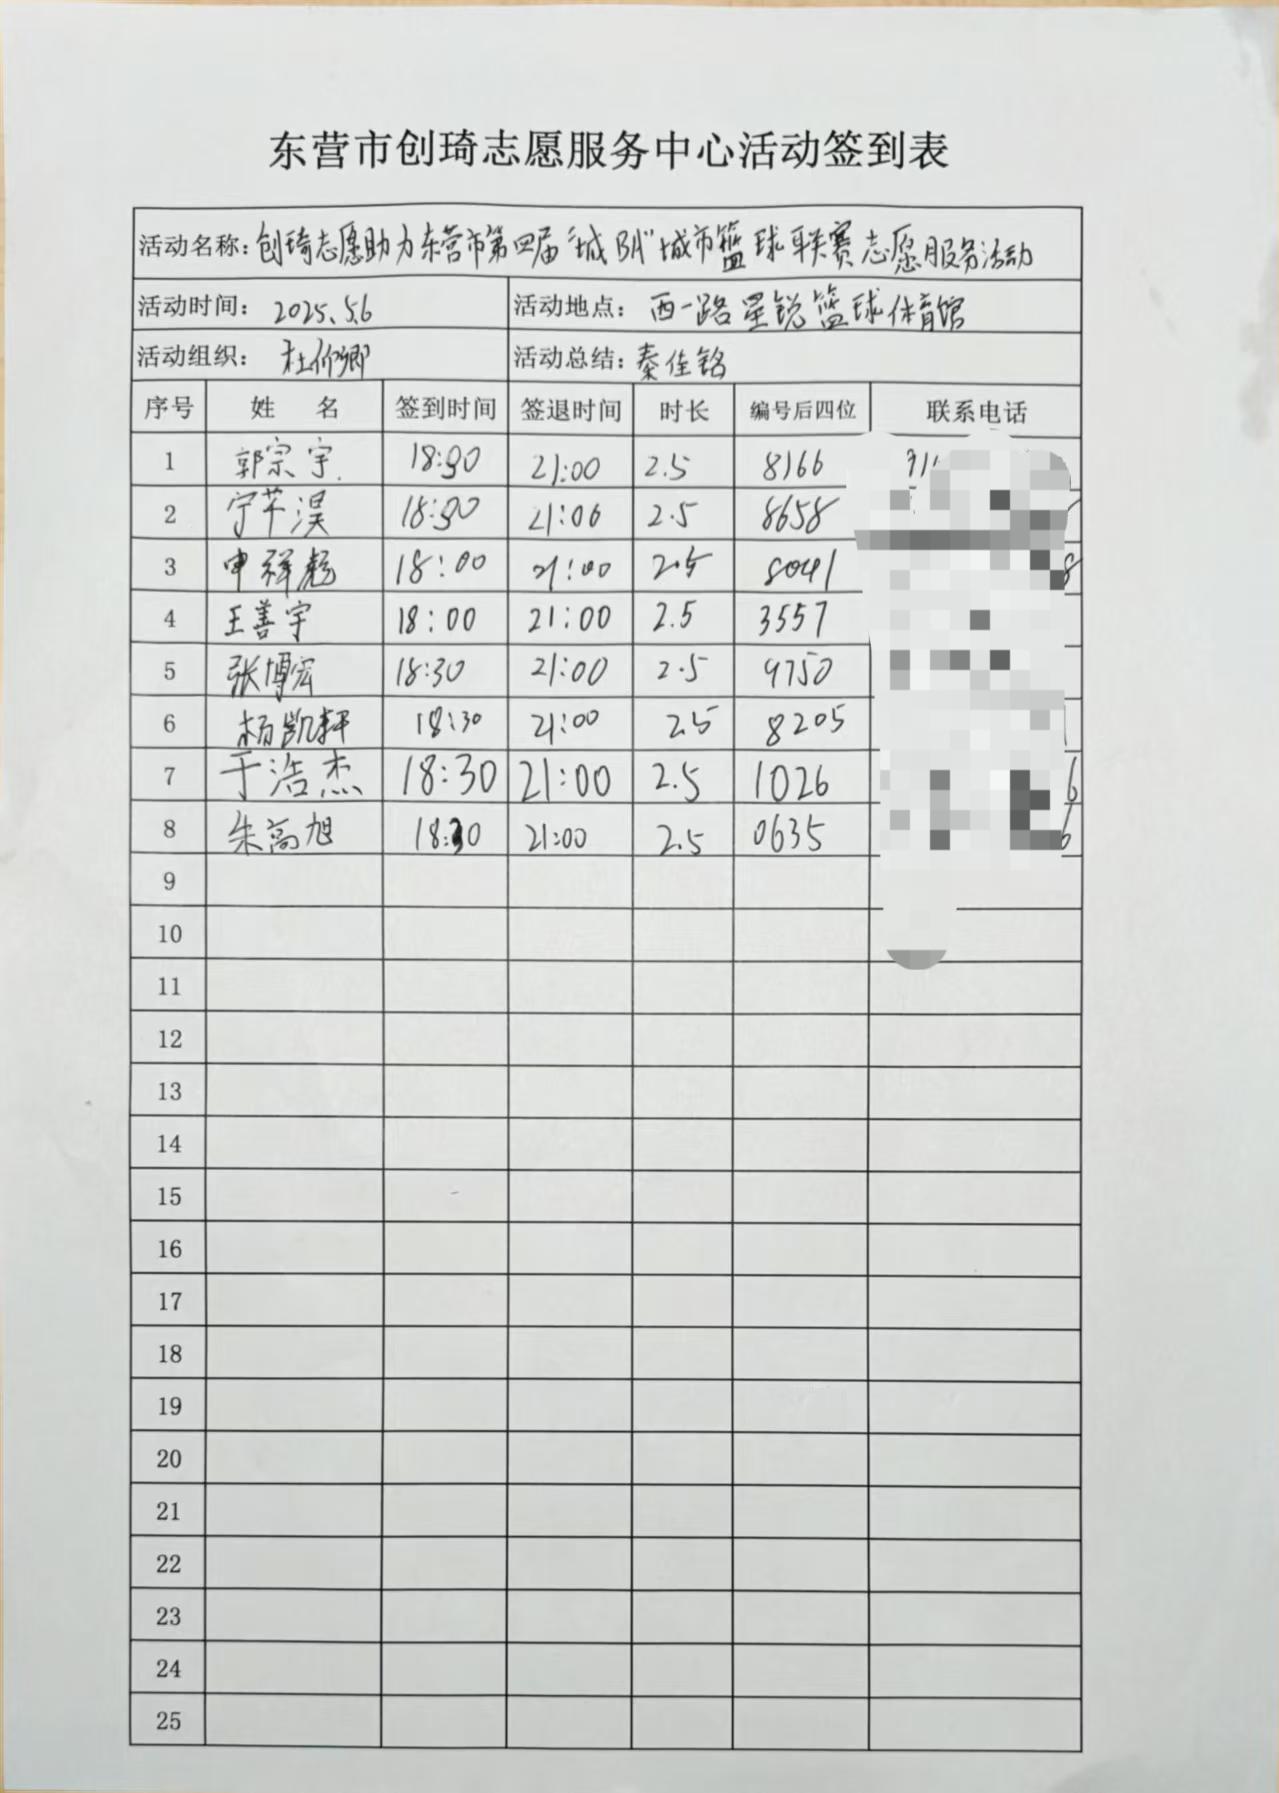 东营市创琦志愿服务中心活动签到表
活动名称：创琦志愿助力东营市第四届“城BA”城市篮球联赛志愿服务活动
活动时间： 2025.5.6 活动地点： 西一路星锐篮球体育馆
活动组织： 杜 卿 活动总结：秦佳铭
序号 姓 名 签到时间 签退时间 时长 编号后四位 联系电话
1 郭宗宇 18:30 21:00 2.5 8166
2 宁 淏 18:30 21:00 2.5 8658
3 申祥彪 18:00 21:00 2.5 8041
4 王善宇 18:00 21:00 2.5 3557
5 张博宏 18:30 21:00 2.5 9750
6 杨凯轩 18:30 21:00 2.5 8205
7 于浩杰 18:30 21:00 2.5 1026
8 朱高旭 18:30 21:00 2.5 0635
9
10
11
12
13
14
15
16
17
18
19
20
21
22
23
24
25